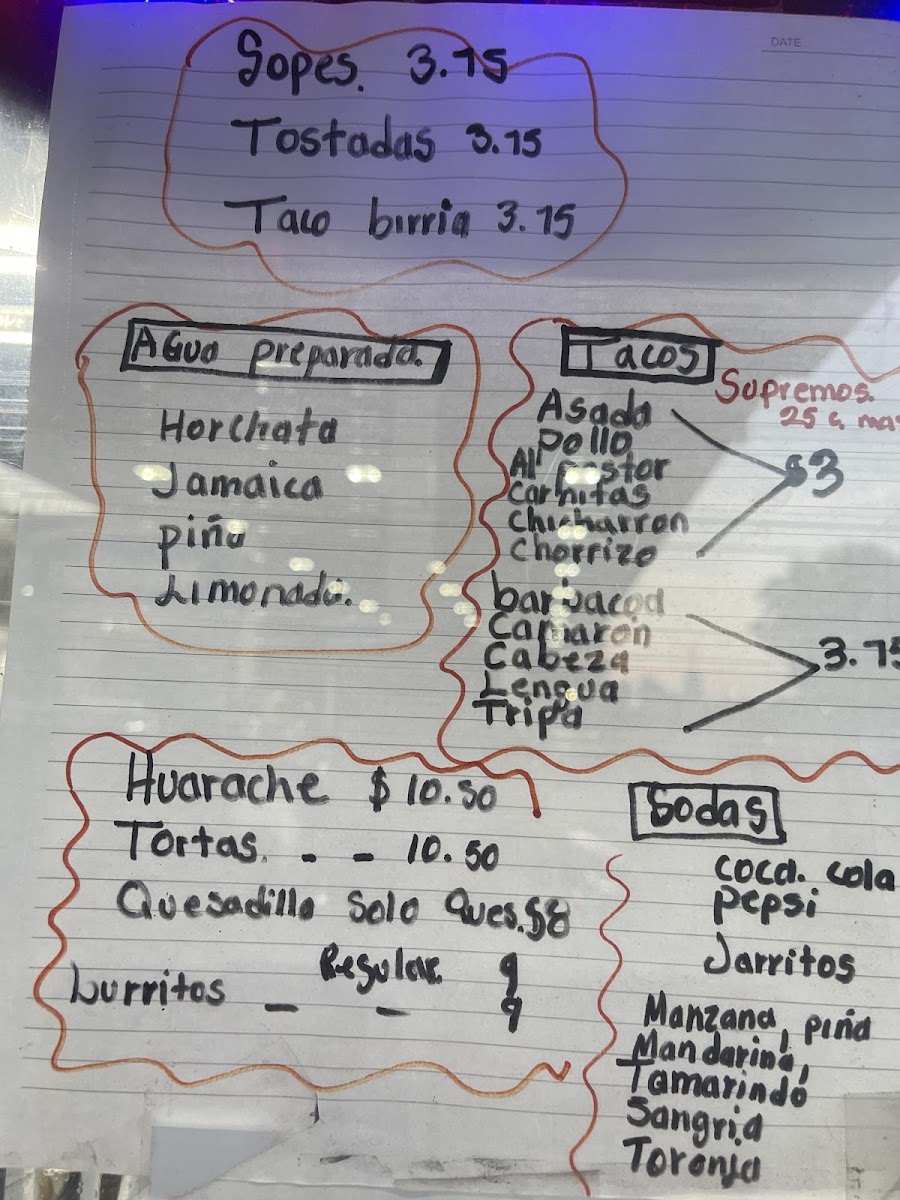 DATE
Sopes. 3.75
Tostadas 3.75
Taco birria 3.75
AGua preparada.
Horchata
Jamaica
piña
Limonada.
Tacos
Supremos.
25 ¢ mas
Asada
pollo
Al pastor
Carnitas
Chicharron
Chorrizo
$3
barbacoa
Camaron
Cabeza
Lengua
Tripa
3.75
Huarache $10.50
Tortas. - - 10.50
Quesadilla Solo Ques. $8
Regular. 9
burritos - - 9
Sodas
coca. cola
Pepsi
Jarritos
Manzana, piña
Mandarina,
Tamarindo
Sangria
Toronja